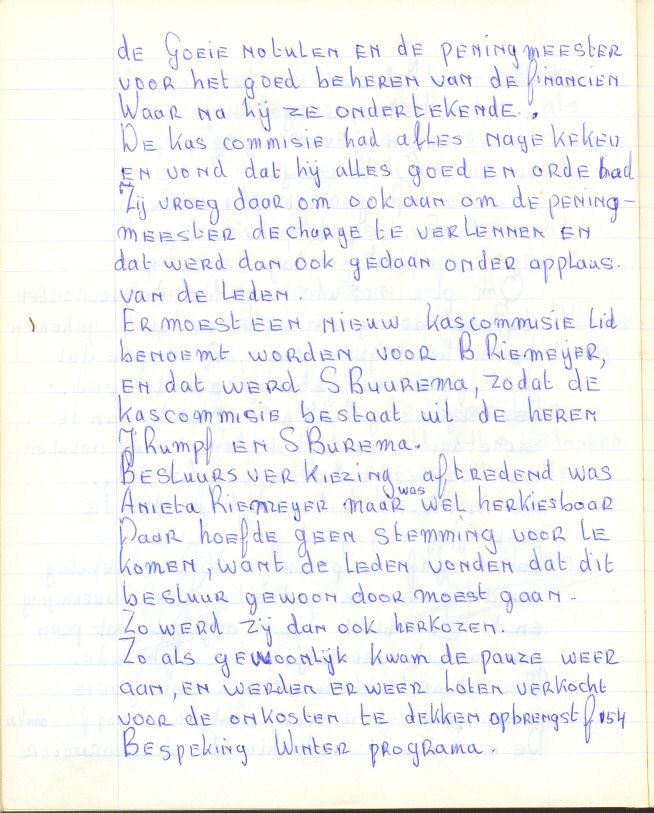 de Goeie notulen en de peningmeester
voor het goed beheren van de financien
Waar na hij ze ondertekende.
De kas commisie had alles nagekeken
en vond dat hij alles goed en orde had
Zij vroeg daar om ook aan om de pening-
meester decharge te verlennen en
dat werd dan ook gedaan onder applaus.
van de leden.
Er moest een nieuw kascommusie lid
benoemt worden voor B Riemeijer,
en dat werd S Buurema, zodat de
kascommisie bestaat uit de heren
J Rumpf en S Burema.
Bestuurs verkiezing aftredend was
Anieta Riemeyer maar was wel herkiesbaar
Daar hoefde geen stemming voor te
komen, want de leden vonden dat dit
bestuur gewoon door moest gaan.
Zo werd zij dan ook herkozen.
Zo als gewoonlijk kwam de pauze weer
aan, en werden er weer loten verkocht
voor de onkosten te dekken opbrengst f 154
Bespeking Winter programa.